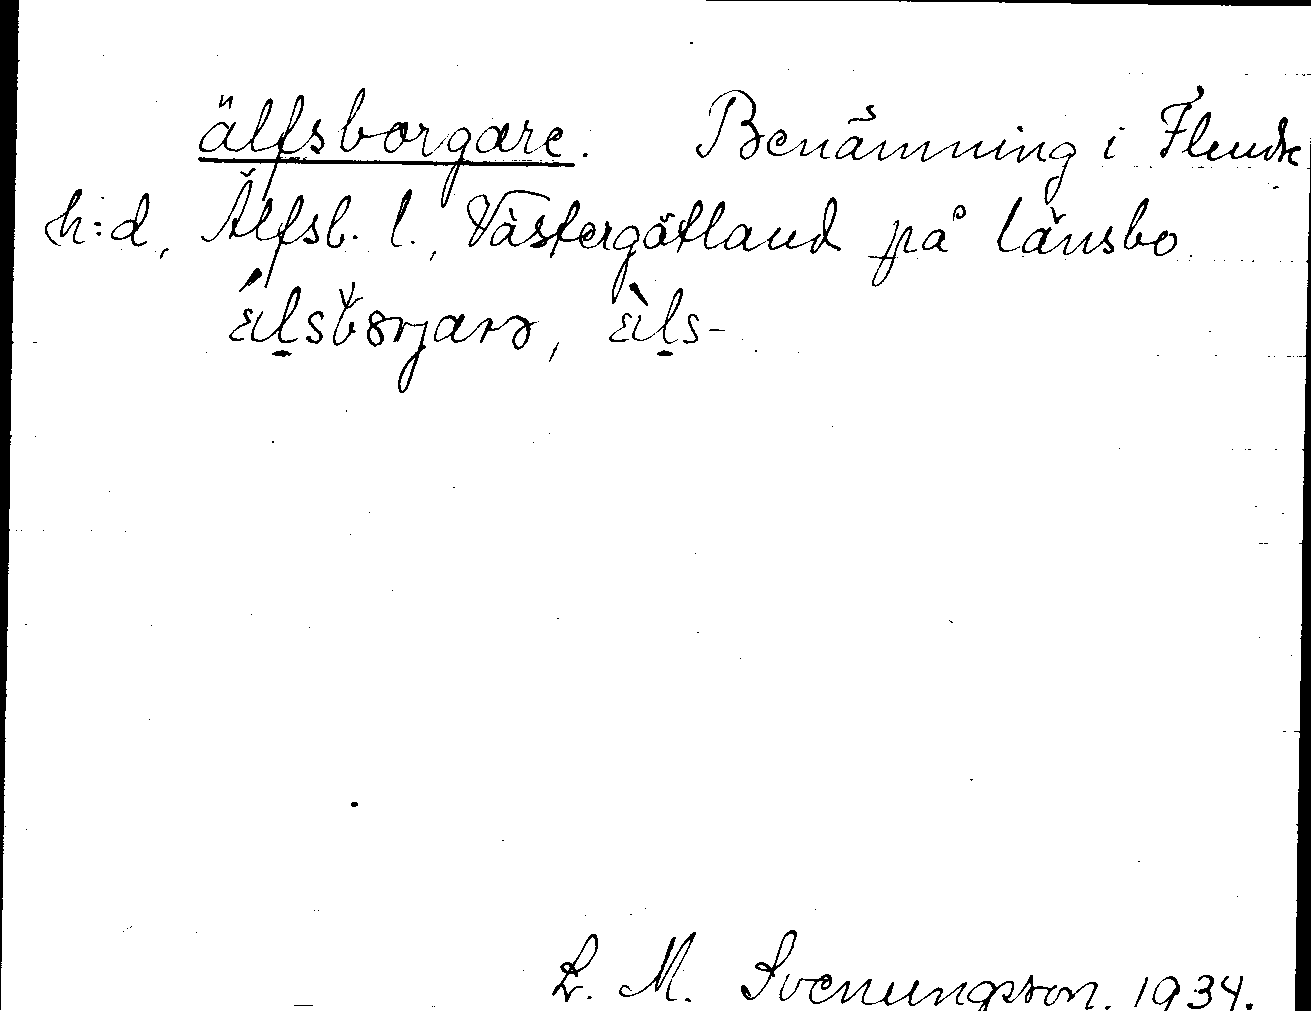 älfsborgare. Benämning i Flundre
h:d, Älfsb. l., Västergötland på länsbo.
L. M. Svenungsson. 1934.